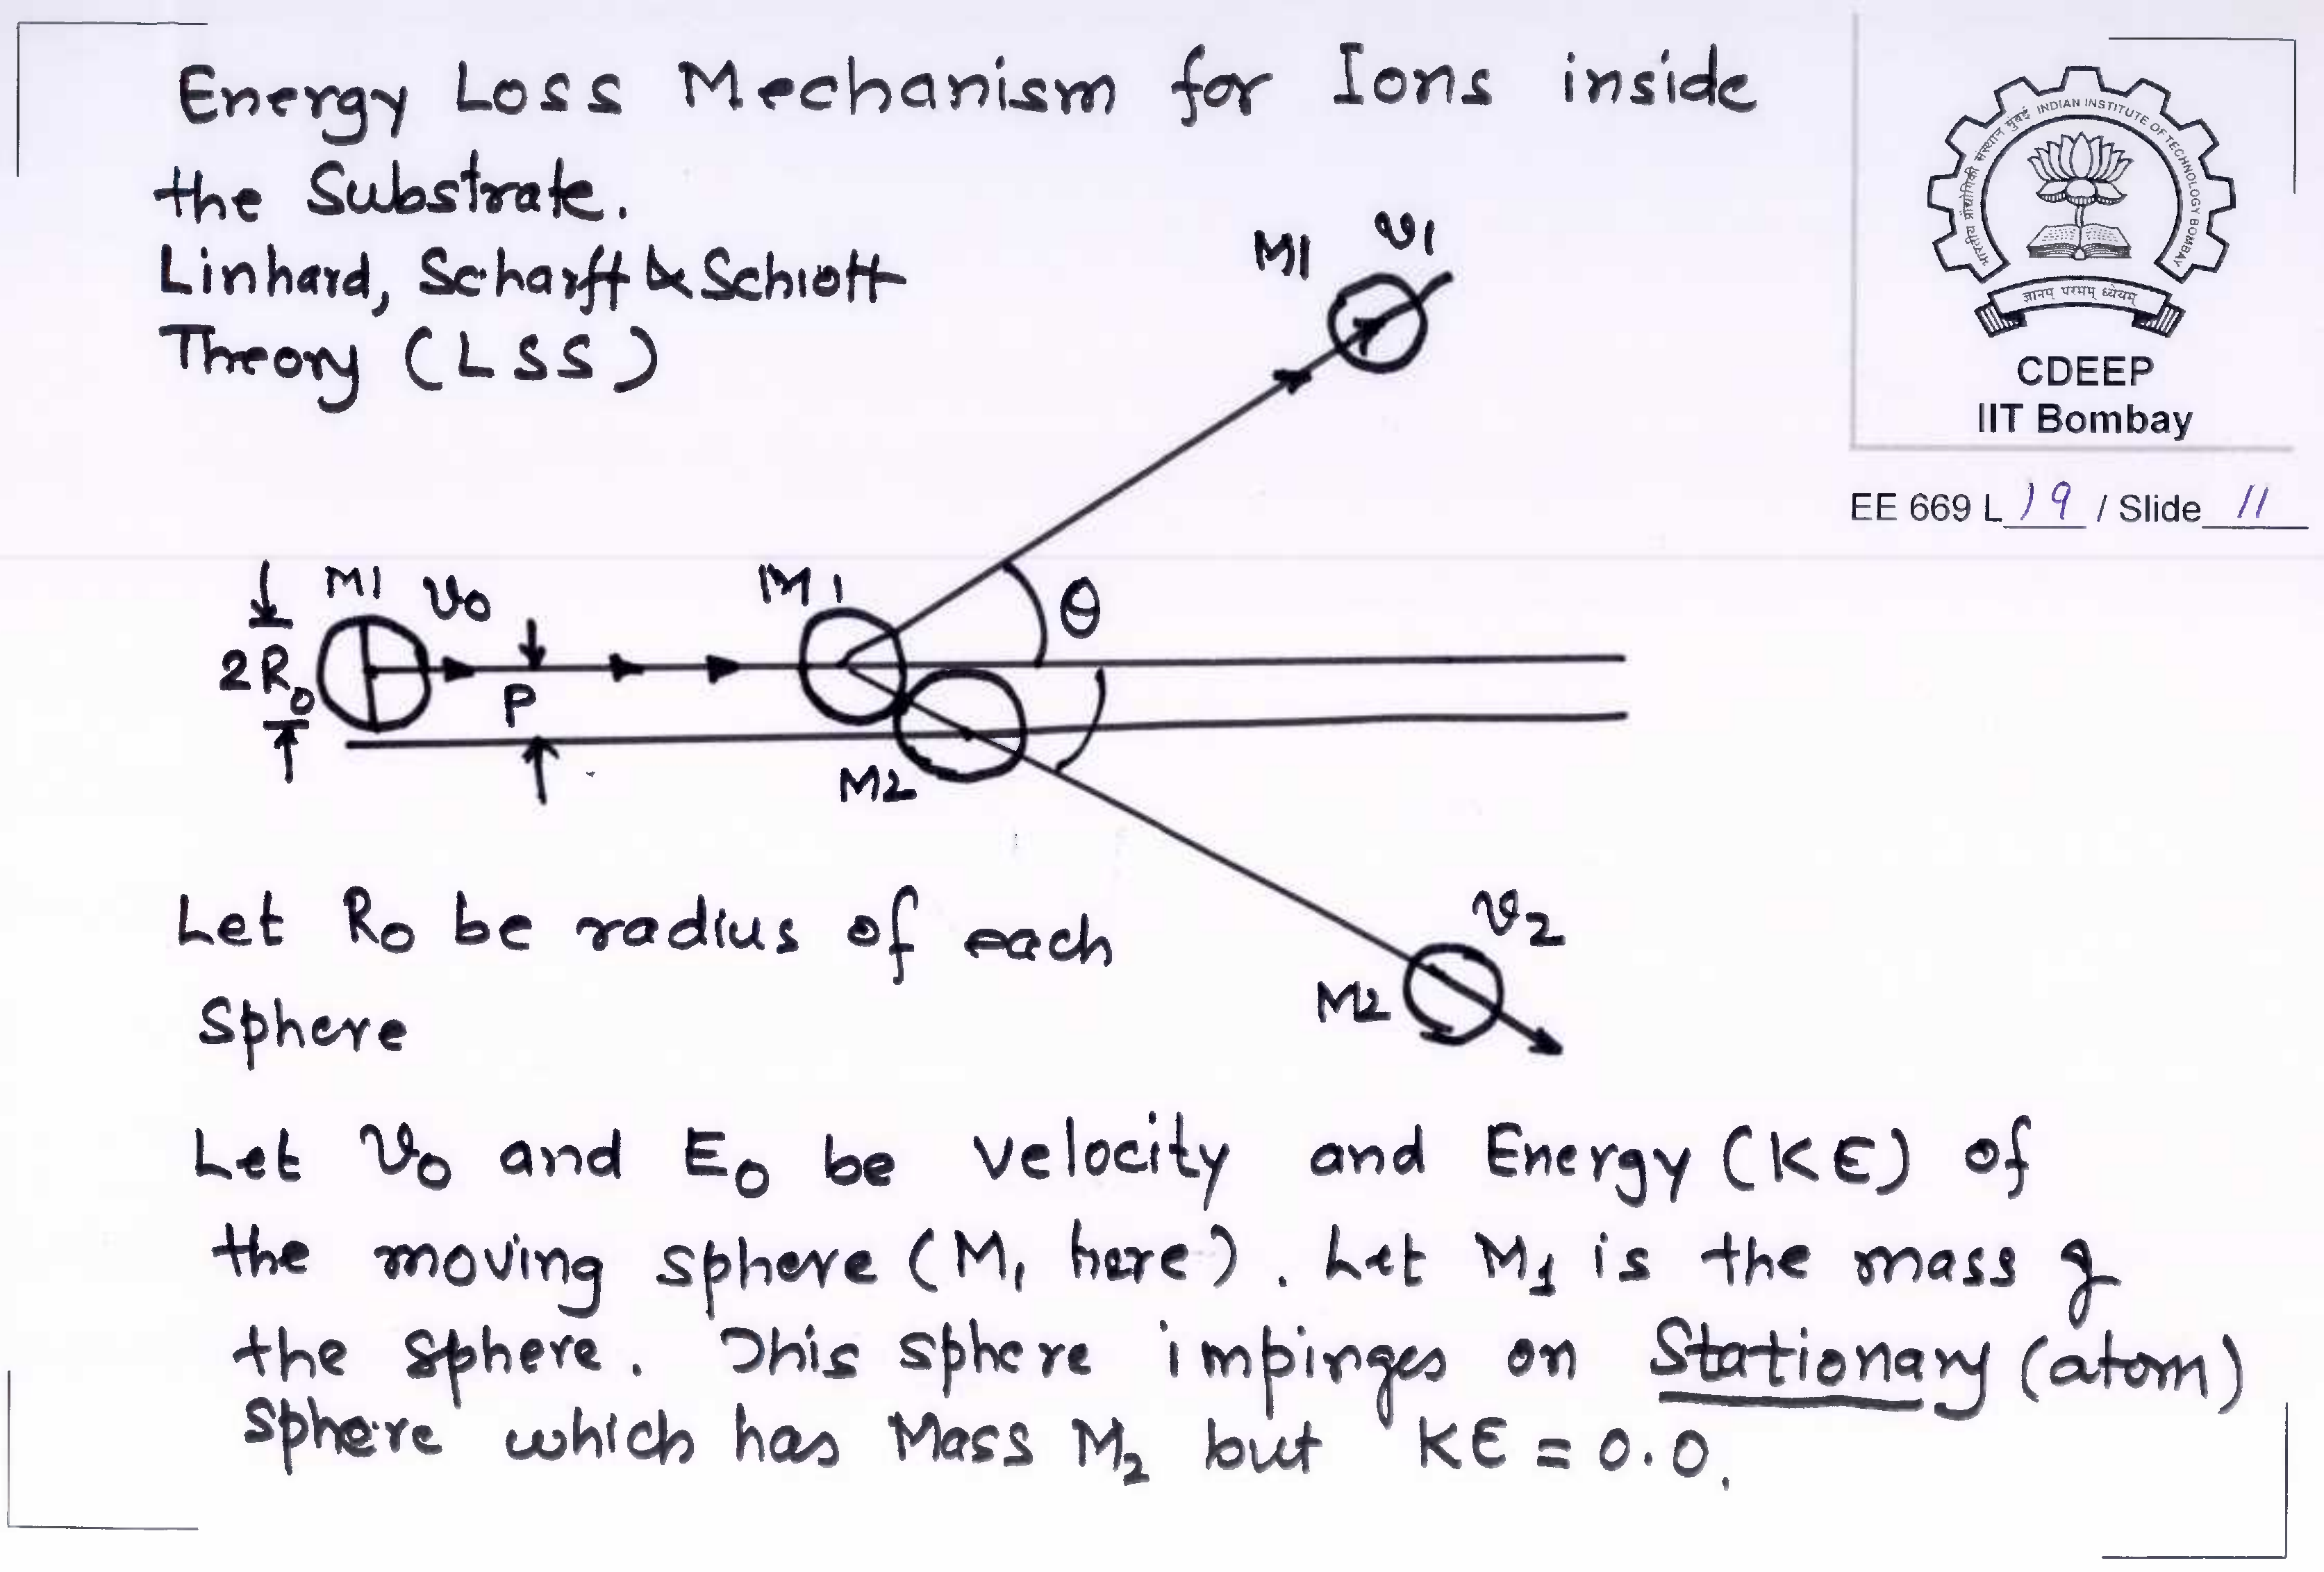 Energy Loss Mechanism for Ions inside
the Substrate.
Linhard, Scharff & Schiott
Theory (LSS)
M1 v1
INDIAN INSTITUTE OF TECHNOLOGY BOMBAY
भारतीय प्रौद्योगिकी संस्थान मुंबई
ज्ञानम् परमम् ध्येयम्
CDEEP
IIT Bombay
EE 669 L 19 / Slide 11
M1 v0
M1
θ
2R0
P
M2
v2
M2
Let R0 be radius of each
Sphere
Let v0 and E0 be velocity and Energy (KE) of
the moving sphere (M1 here). Let M1 is the mass of
the sphere. This sphere impinges on Stationary (atom)
sphere which has Mass M2 but KE = 0.0.